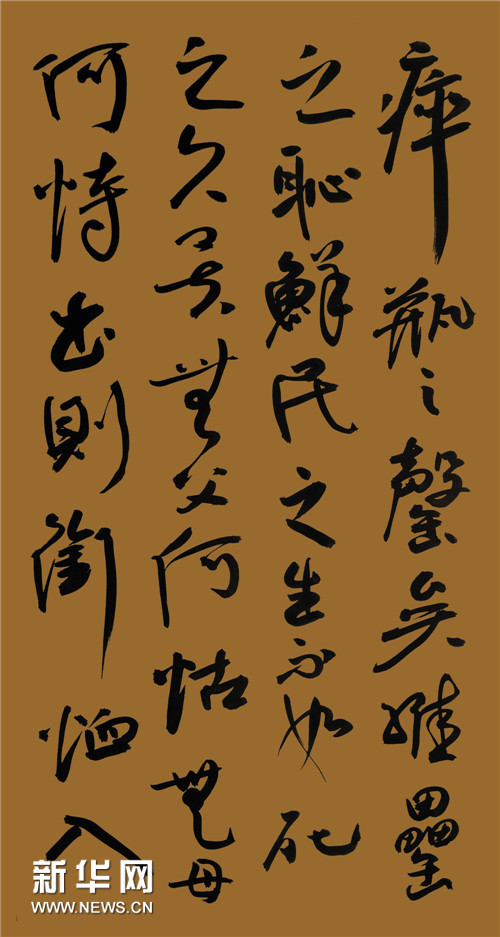 瘁瓶之罄矣維罍
之恥鮮民之生不如死
之久矣無父何怙無母
何恃出則銜恤入
新华网
WWW.NEWS.CN